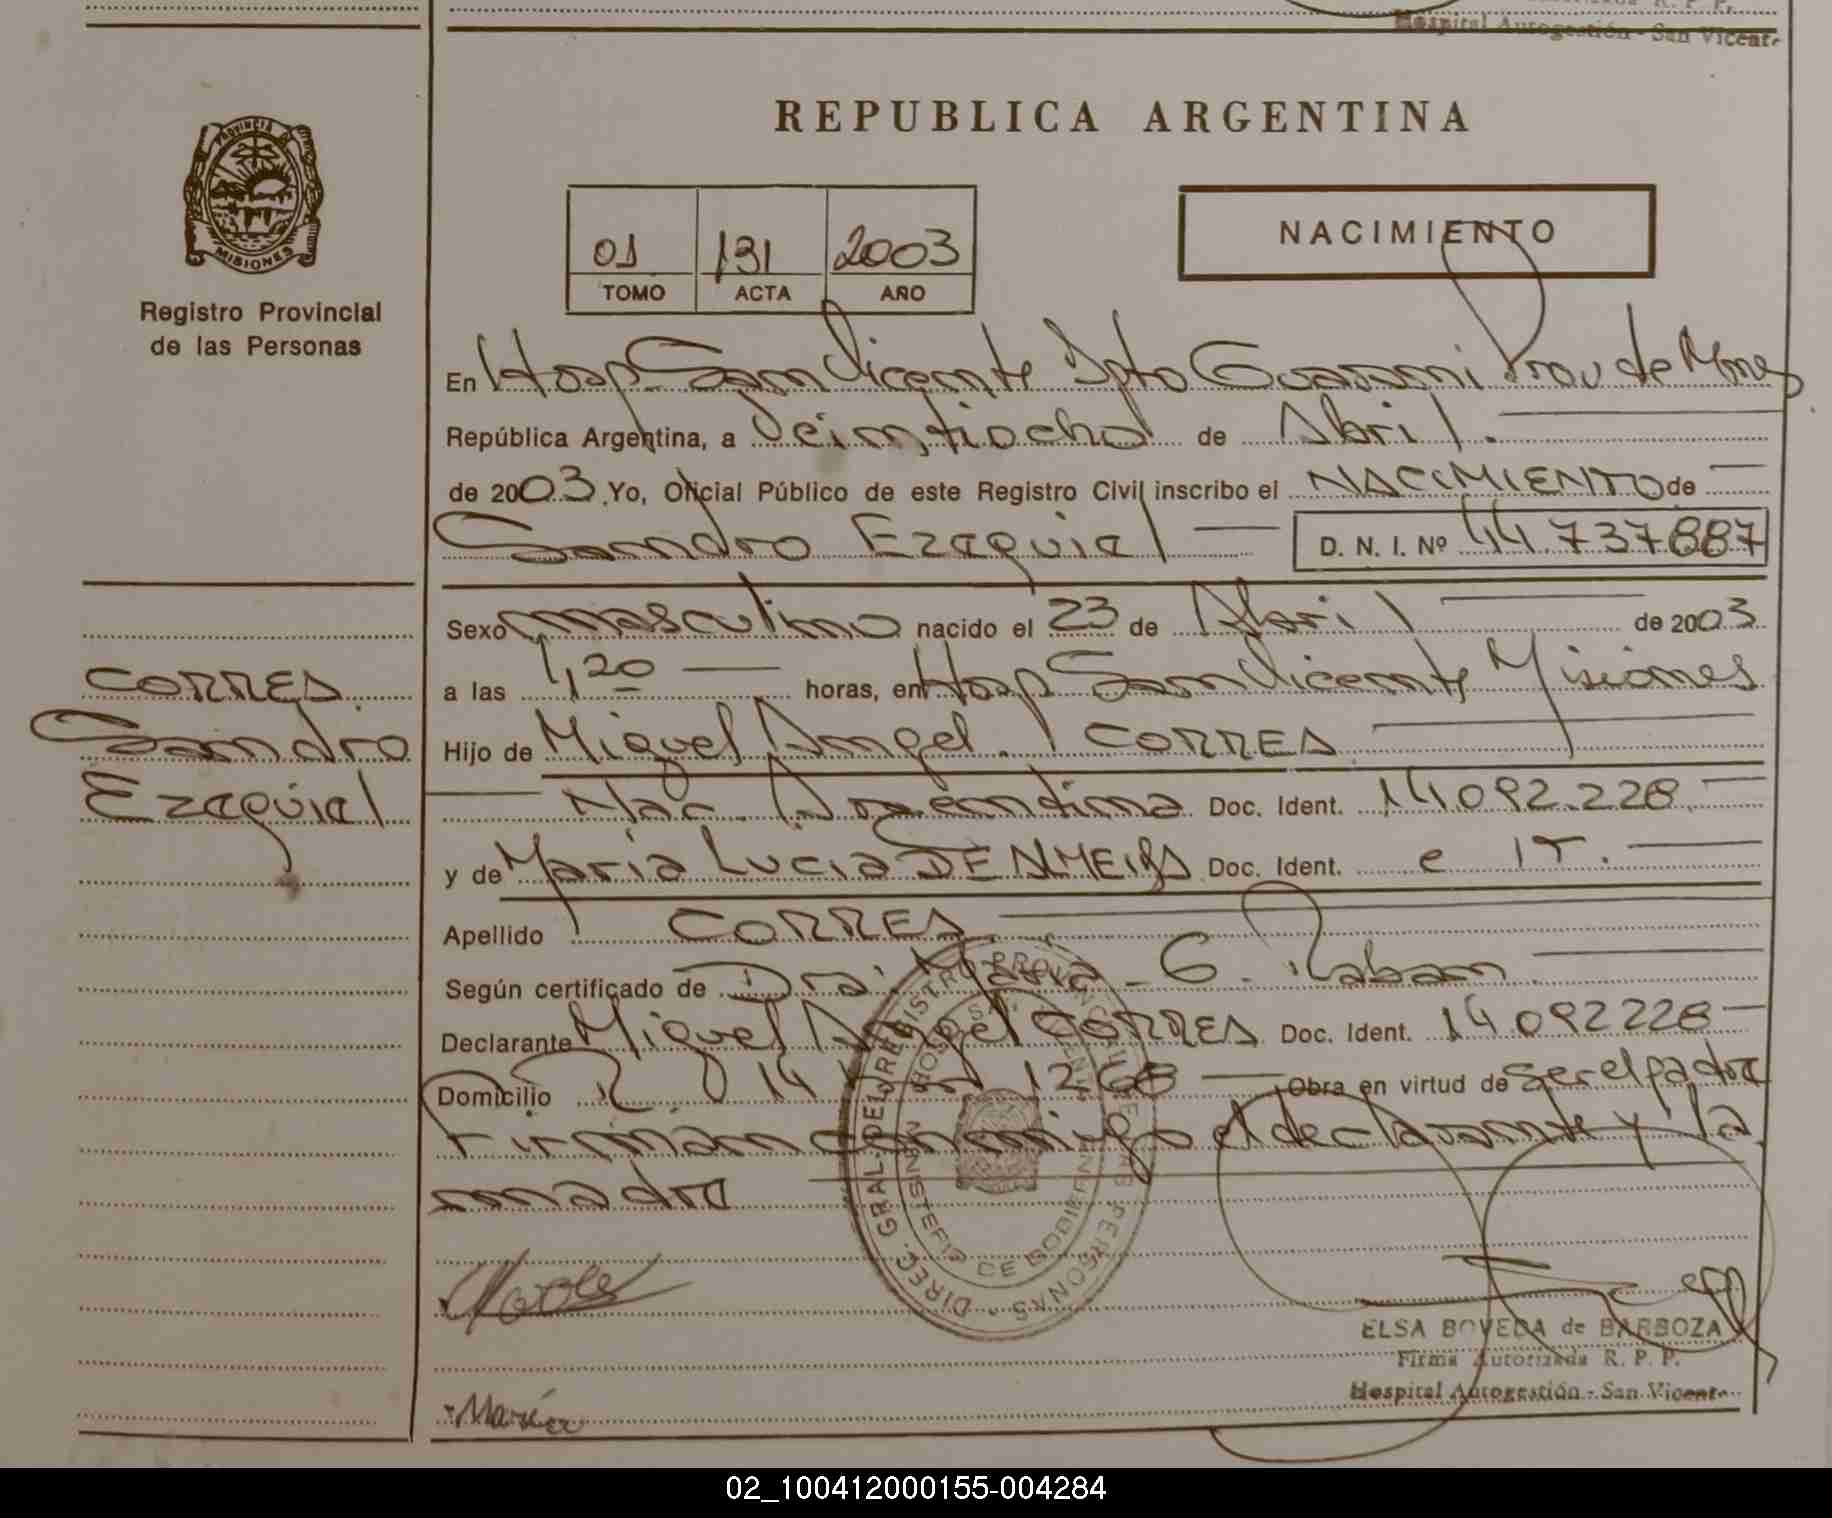 Hospital Autogestión - San Vicente
REPUBLICA ARGENTINA
PROVINCIA DE
MISIONES
Registro Provincial
de las Personas
01 131 2003
TOMO ACTA AÑO
NACIMIENTO
En Hosp San Vicente Dpto Guarani Prov de Mnes
República Argentina, a Veintiocho de Abril.
de 2003 Yo, Oficial Público de este Registro Civil inscribo el NACIMIENTO de
Sandro Ezequiel D. N. I. Nº 44.737887
Sexo masculino nacido el 23 de Abril de 2003
a las 1,20 horas, en Hosp San Vicente Misiones
CORREA
Sandro
Ezequiel
Hijo de Miguel Angel CORREA
Nac. Argentina Doc. Ident. 14092.228
y de Maria Lucia Doc. Ident. e 1T.
Apellido CORREA
Según certificado de Dra. Maria G. Raban
Declarante Miguel Angel CORREA Doc. Ident. 14.092228
Domicilio R. 14 1268 Obra en virtud de ser el padre
Firman conmigo el declarante y la
madre
DIREC. GRAL. DEL REGISTRO PROVINCIAL DE LAS PERSONAS
MINISTERIO DE GOBIERNO
ELSA BOVEDA de BARBOZA
Firma Autorizada R. P. P.
Hospital Autogestión - San Vicente
Maria
02_100412000155-004284